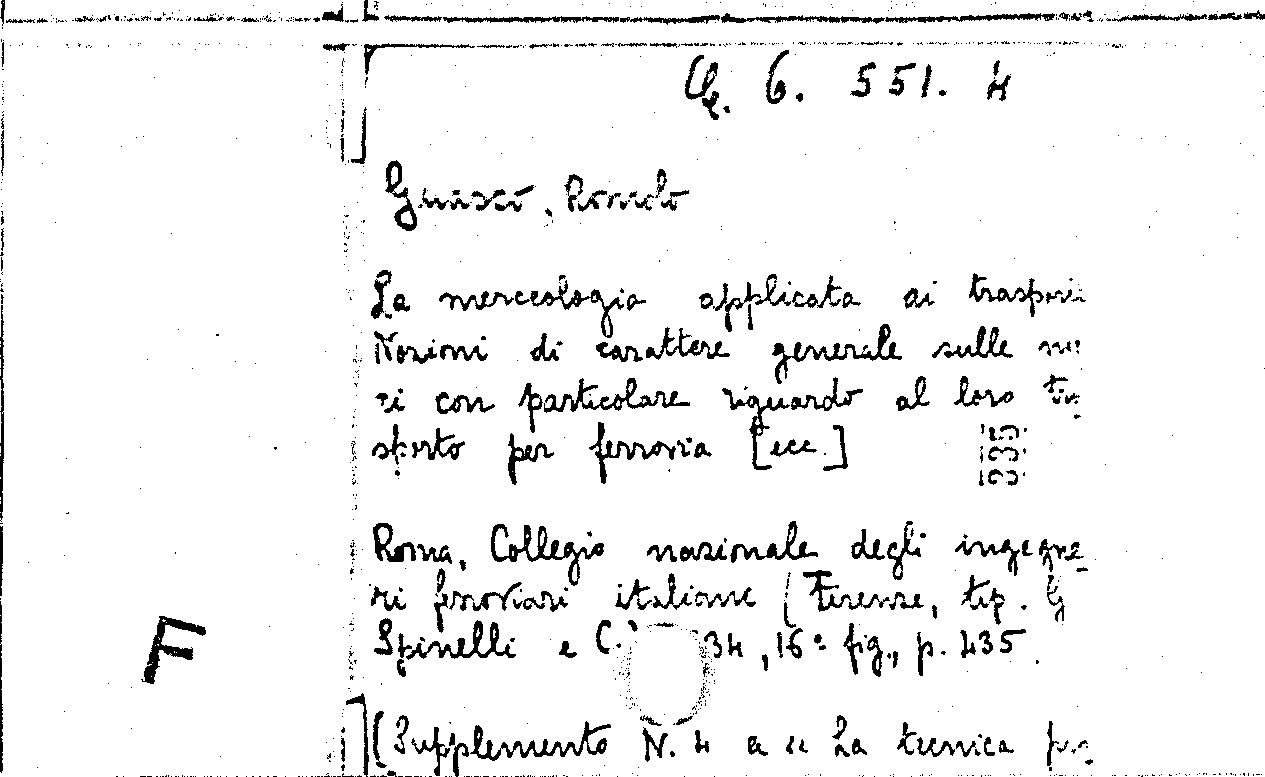 6. 551. 4
Guasco, Romolo
La merceologia applicata ai trasporti
Nozioni di carattere generale sulle
ci con particolare riguardo al loro
sporto per ferrovia [ecc.]
335
Roma, Collegio nazionale degli ingegne-
ri ferroviari italiani (Firenze, tip. G
Spinelli e C.) 34, 16° fig., p. 435
F
(Supplemento N. 4 a « La tecnica